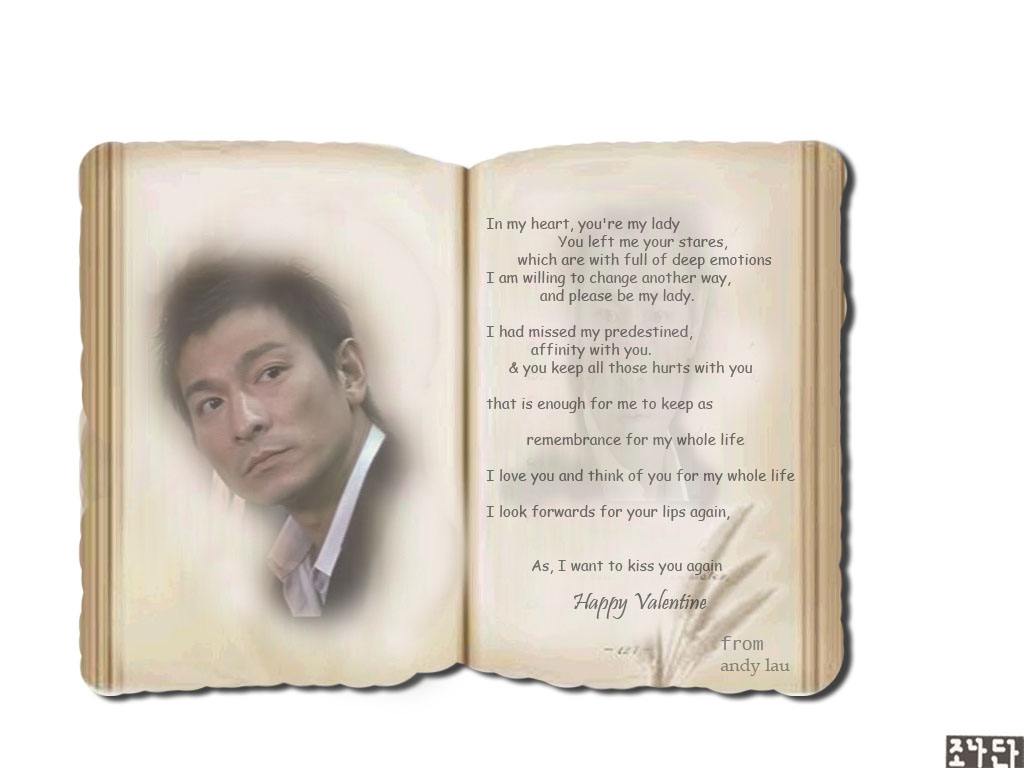 In my heart, you're my lady
You left me your stares,
which are with full of deep emotions
I am willing to change another way,
and please be my lady.
I had missed my predestined,
affinity with you.
& you keep all those hurts with you
that is enough for me to keep as
remembrance for my whole life
I love you and think of you for my whole life
I look forwards for your lips again,
As, I want to kiss you again
Happy Valentine
from
andy lau